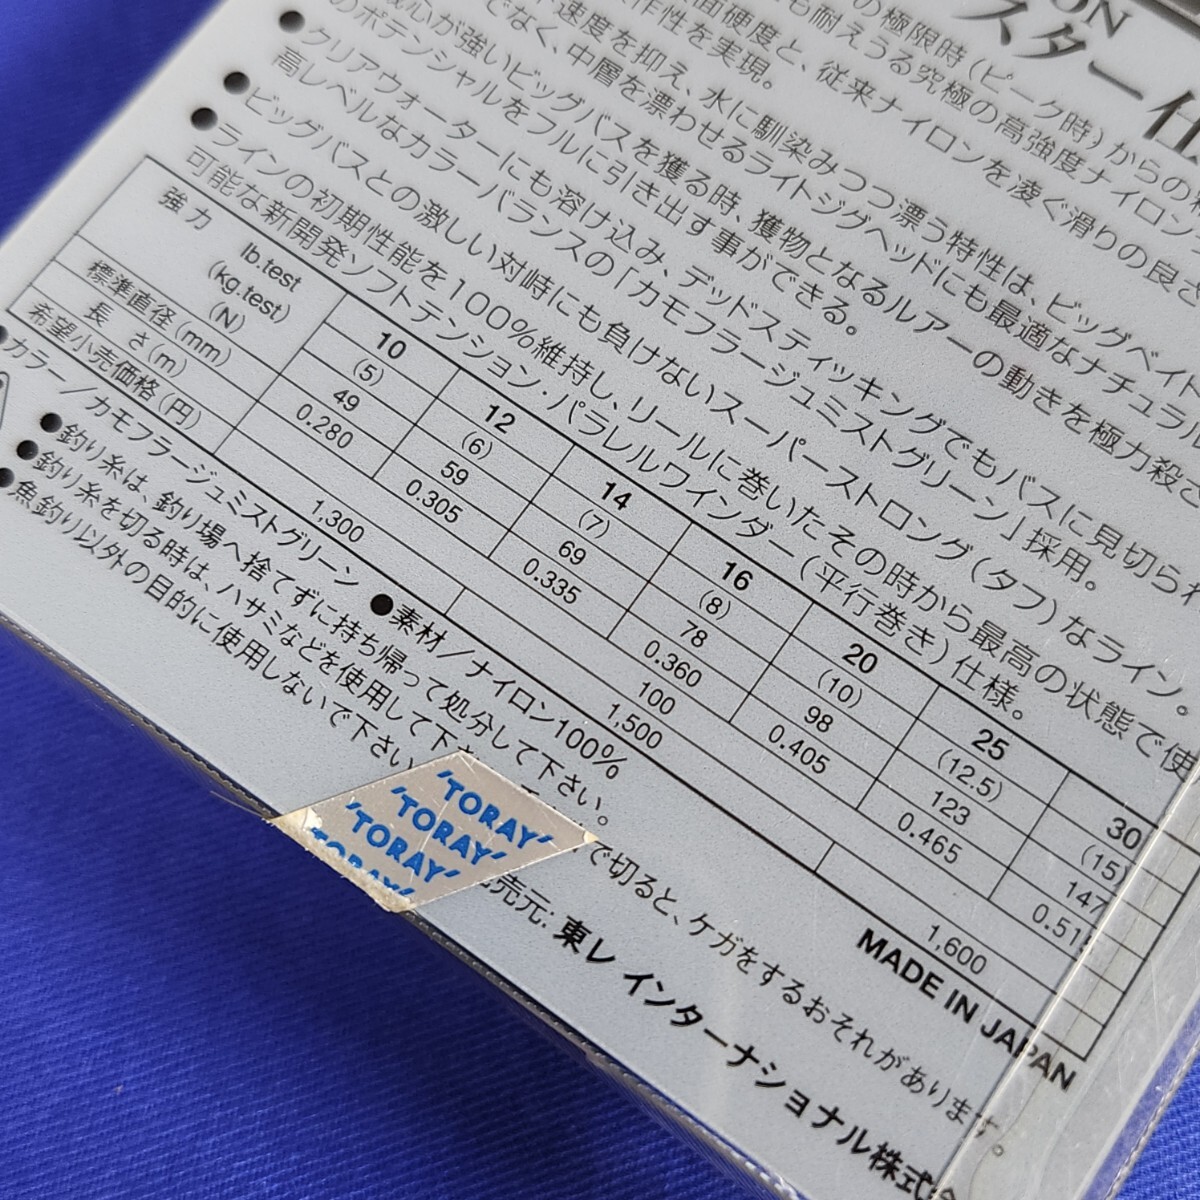 ON
スター 仕
の極限時(ピーク時)からの
も耐えうる究極の高強度ナイロン
面硬度と、従来ナイロンを凌ぐ滑りの良さ
作性を実現。
速度を抑え、水に馴染みつつ漂う特性は、ビッグベイト
でなく、中層を漂わせるライトジグヘッドにも最適なナチュラル
心が強いビッグバスを獲る時、獲物となるルアーの動きを極力殺さ
のポテンシャルをフルに引き出す事ができる。
●クリアウォーターにも溶け込み、デッドスティッキングでもバスに見切られ
高レベルなカラーバランスの「カモフラージュミストグリーン」採用。
●ビッグバスとの激しい対峙にも負けないスーパーストロング(タフ)なライン。
●ラインの初期性能を100%維持し、リールに巻いたその時から最高の状態で使
可能な新開発ソフトテンション・パラレルワインダー(平行巻き)仕様。
強力 lb.test 10 12 14 16 20 25 30
(kg.test) (5) (6) (7) (8) (10) (12.5) (15)
(N) 49 59 69 78 98 123 147
標準直径(mm) 0.280 0.305 0.335 0.360 0.405 0.465 0.51
長さ(m) 100
希望小売価格(円) 1,300 1,500 1,600
カラー/カモフラージュミストグリーン ●素材/ナイロン100% MADE IN JAPAN
●釣り糸は、釣り場へ捨てずに持ち帰って処分して下さい。
●釣り糸を切る時は、ハサミなどを使用して下 で切ると、ケガをするおそれがあります。
●魚釣り以外の目的に使用しないで下さい
売元:東レ インターナショナル株式
'TORAY'
'TORAY'
'TORAY'
TORAY'